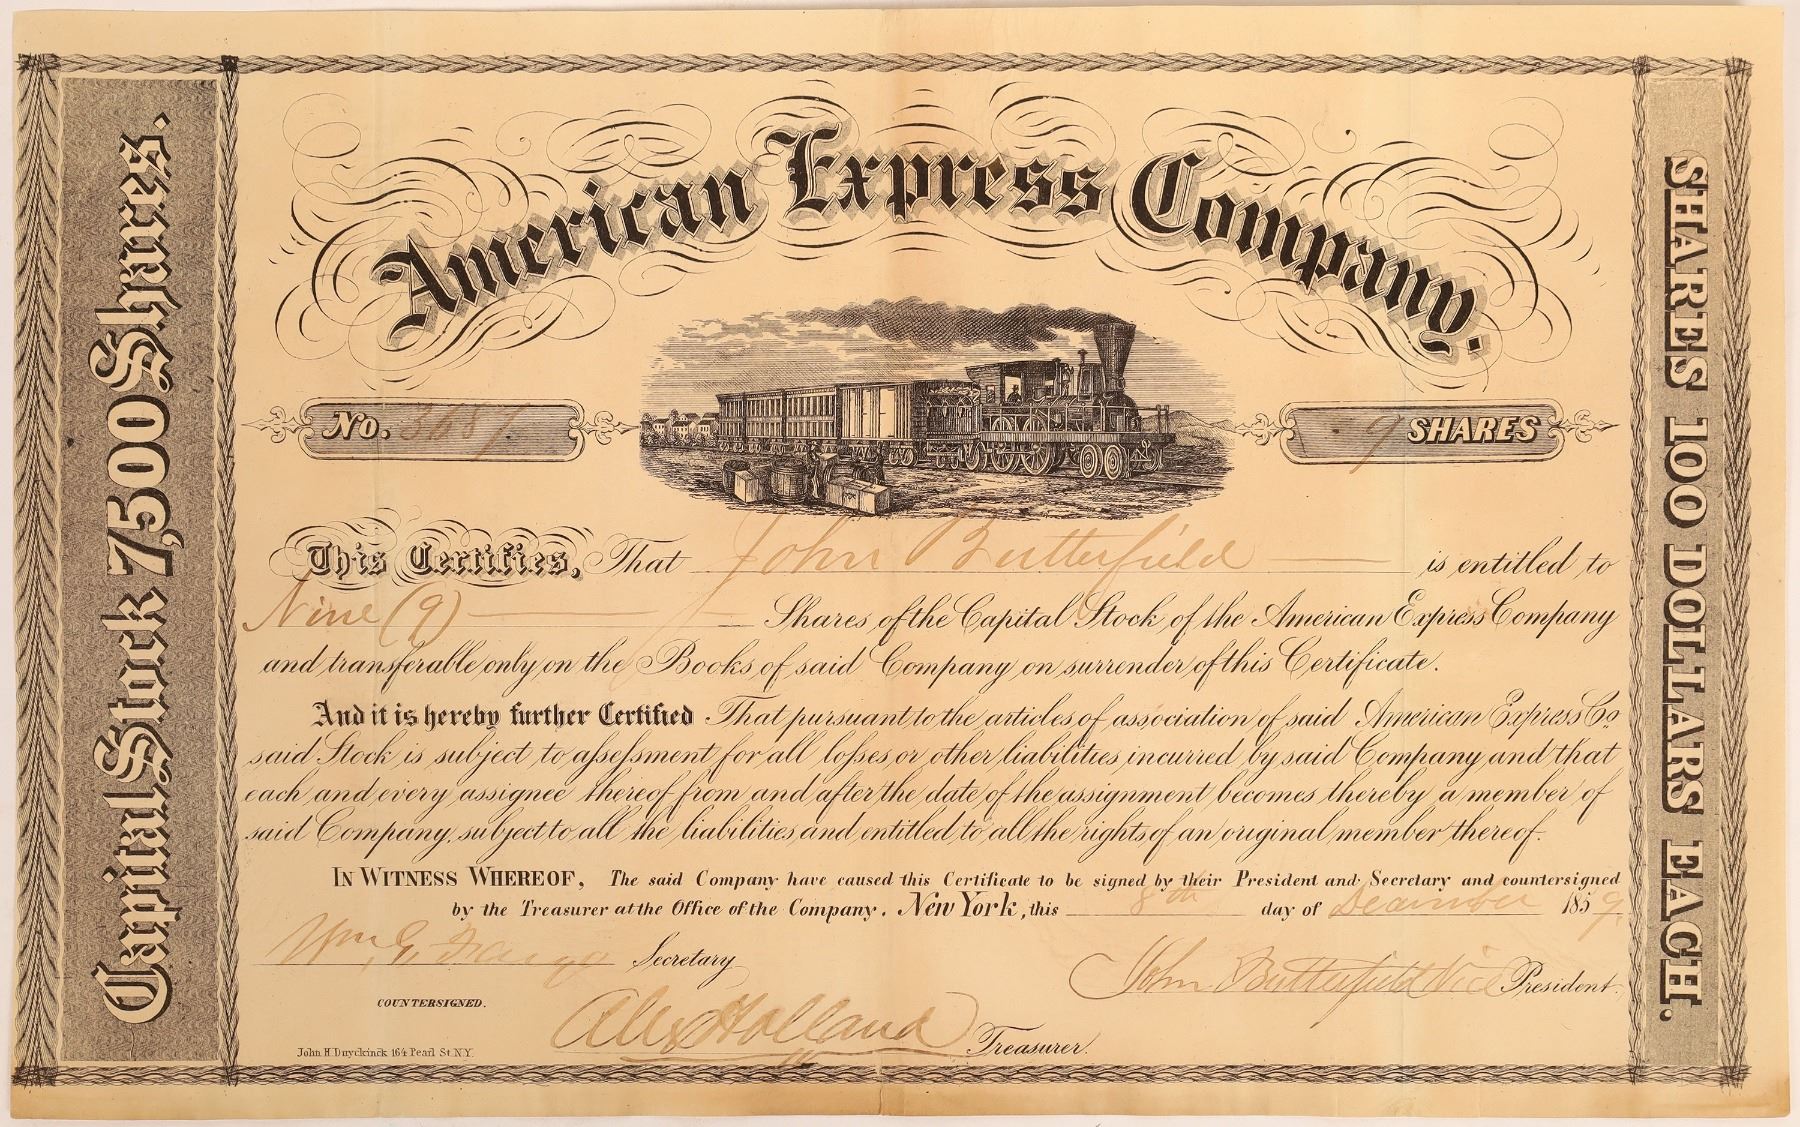 American Express Company.
Capital Stock 7,500 Shares.
SHARES 100 DOLLARS EACH.
No. 3687
9 SHARES
This Certifies, That John Butterfield is entitled to
Nine (9) Shares of the Capital Stock of the American Express Company
and transferable only on the Books of said Company on surrender of this Certificate.
And it is hereby further Certified That pursuant to the articles of association of said American Express Co.
said Stock is subject to assessment for all losses or other liabilities incurred by said Company and that
each and every assignee thereof from and after the date of the assignment becomes thereby a member of
said Company, subject to all the liabilities and entitled to all the rights of an original member thereof.
IN WITNESS WHEREOF, The said Company have caused this Certificate to be signed by their President and Secretary and countersigned
by the Treasurer at the Office of the Company. New York, this 8th day of December 1859
Wm. G. Fargo Secretary
John Butterfield Vice President.
COUNTERSIGNED.
Alex Holland Treasurer.
John H Duyckinck 164 Pearl St. N.Y.